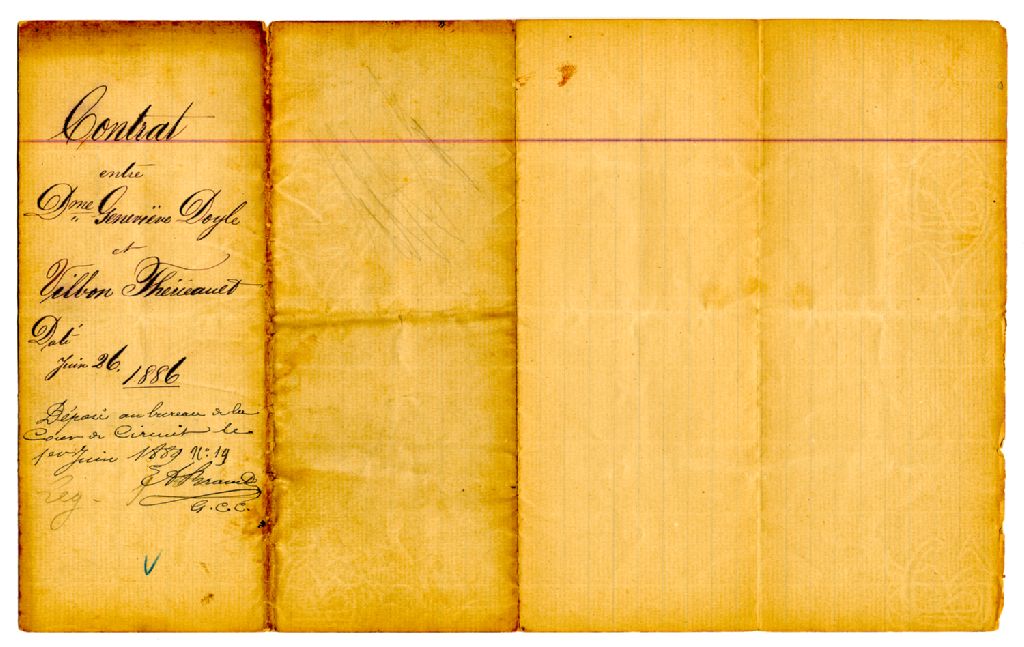 Contrat
entre
Dme Geneviève Doyle
et
Vilbon Thérieault
Daté
Juin 26.
1886
Déposé au bureau de la
Cour de Circuit le
1er Juin 1889 No: 19
G.C.C.
reg.